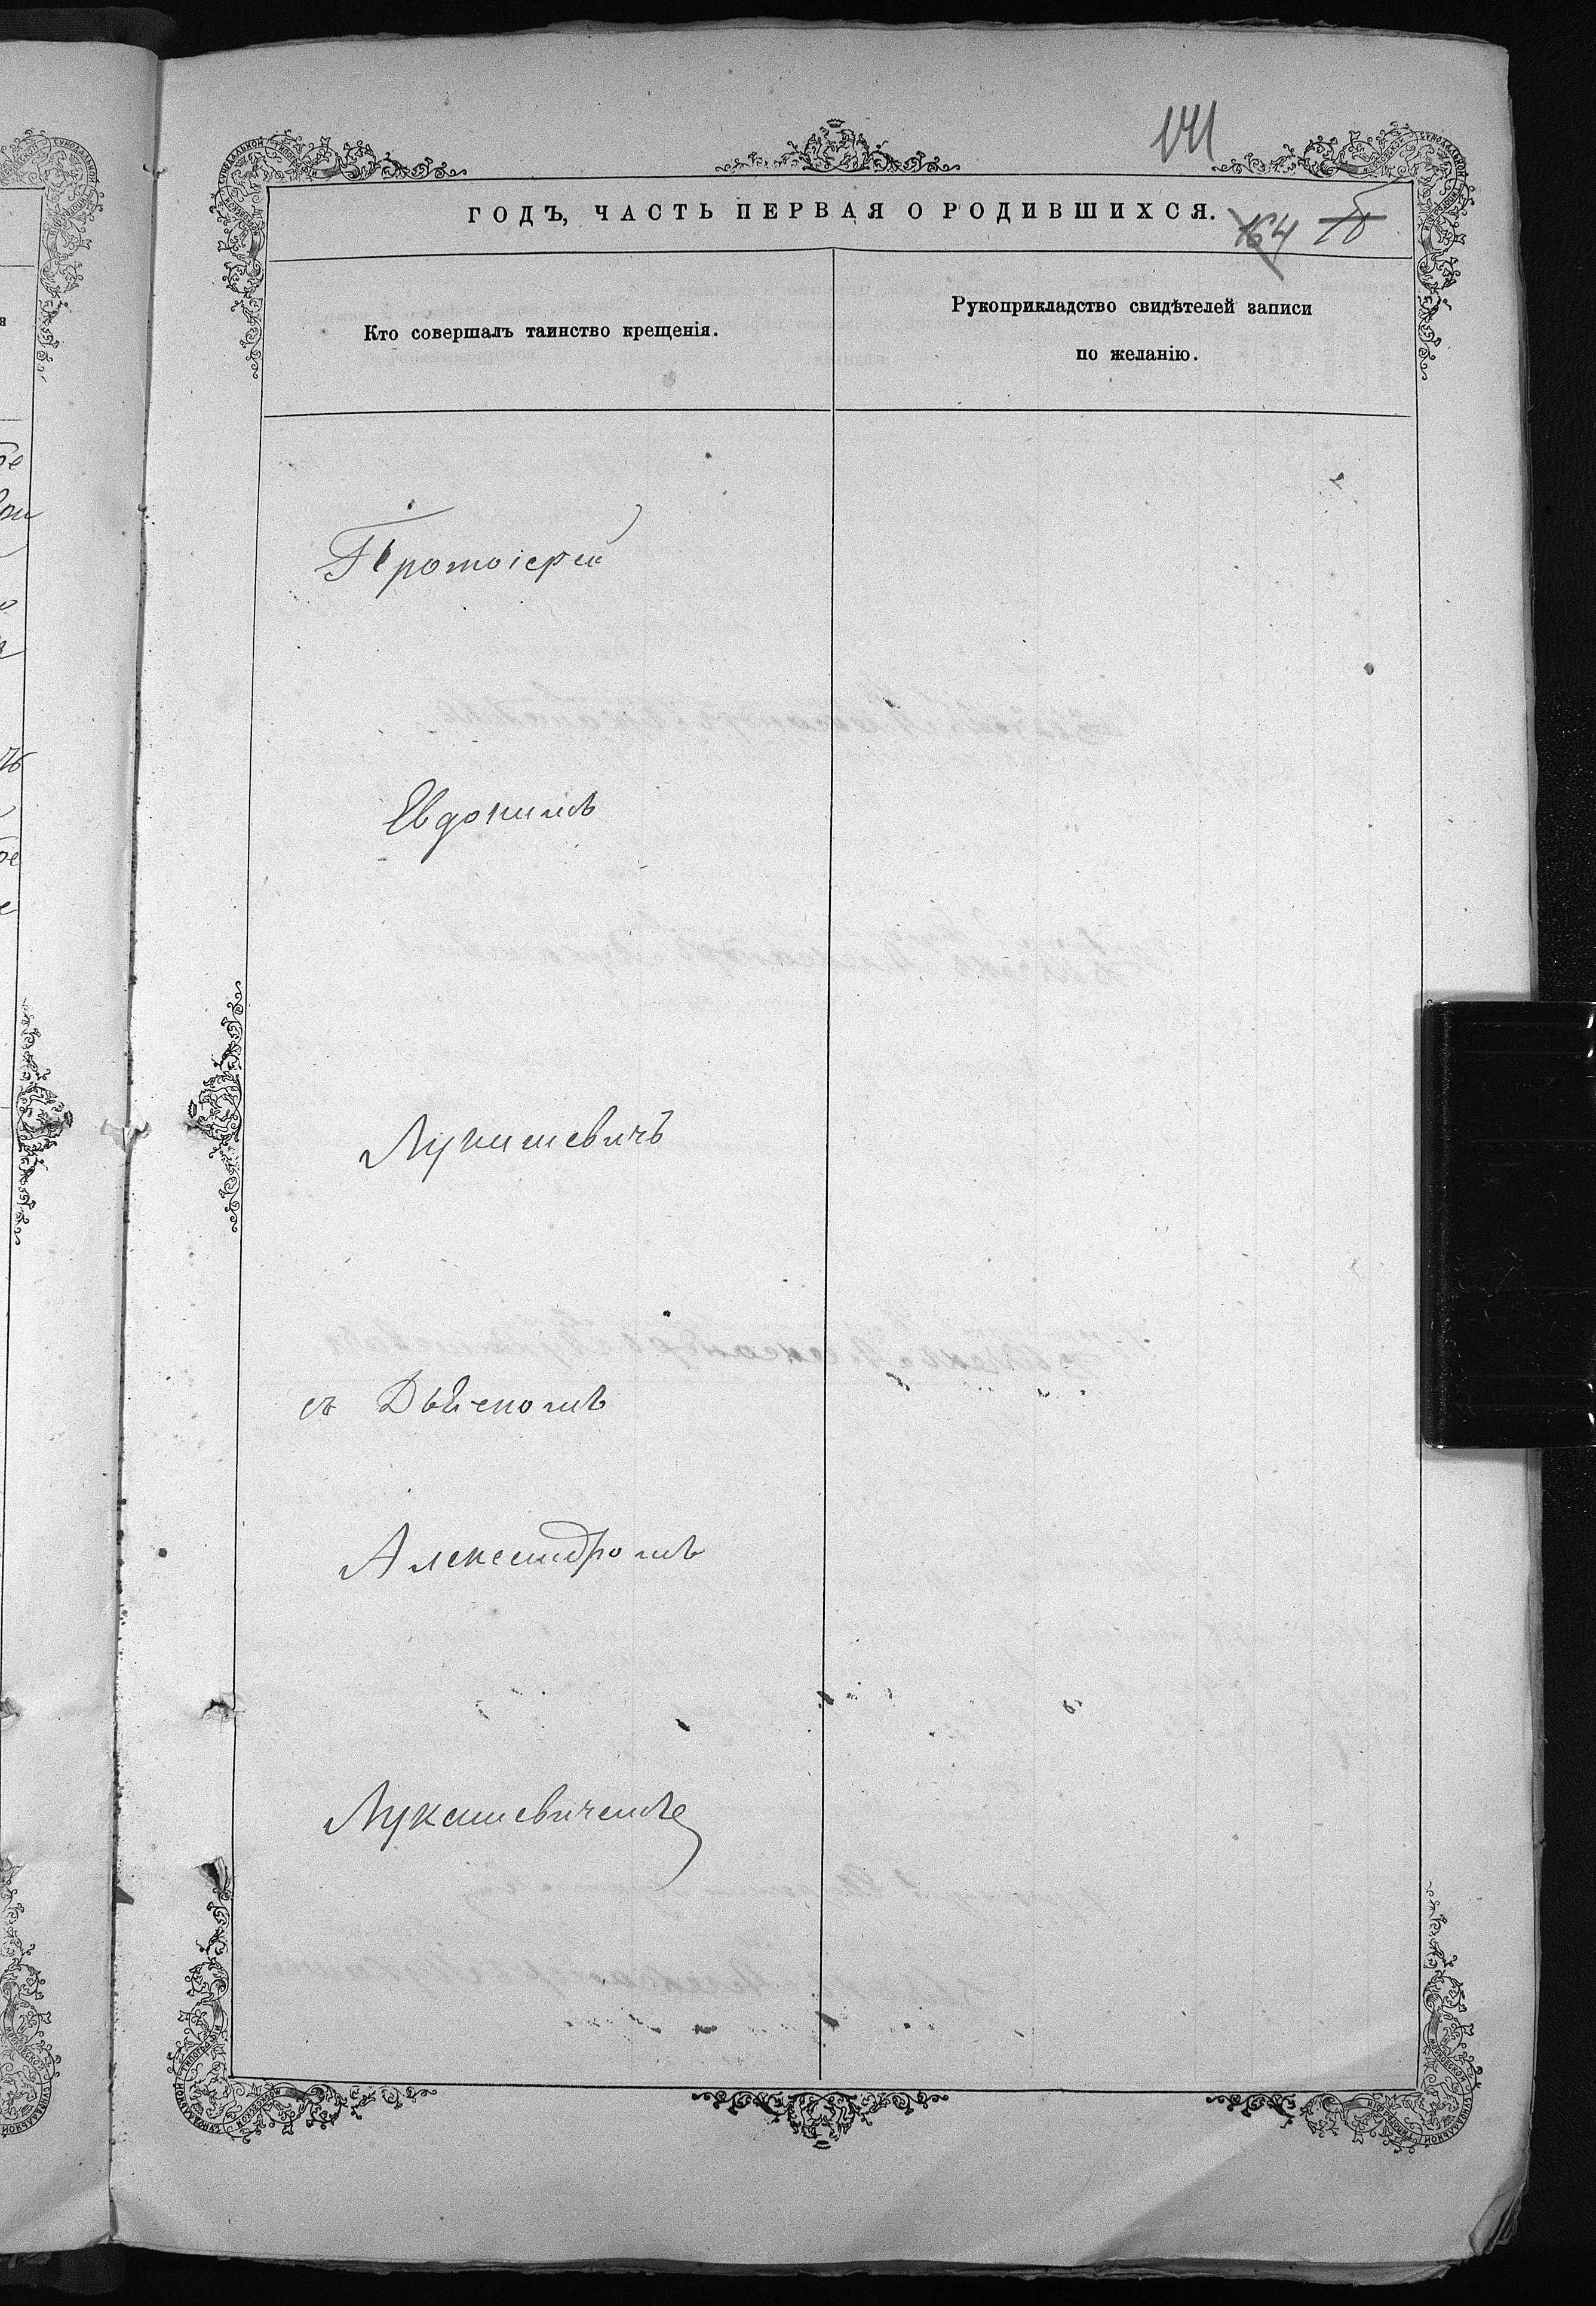 141
ГОДЪ, ЧАСТЬ ПЕРВАЯ О РОДИВШИХСЯ.
164
Кто совершалъ таинство крещенія.
Рукоприкладство свидѣтелей записи
по желанію.
Протоіерей
Евдокимъ
Лукашевичъ
съ Дьякомъ
Александромъ
Лукашевичемъ